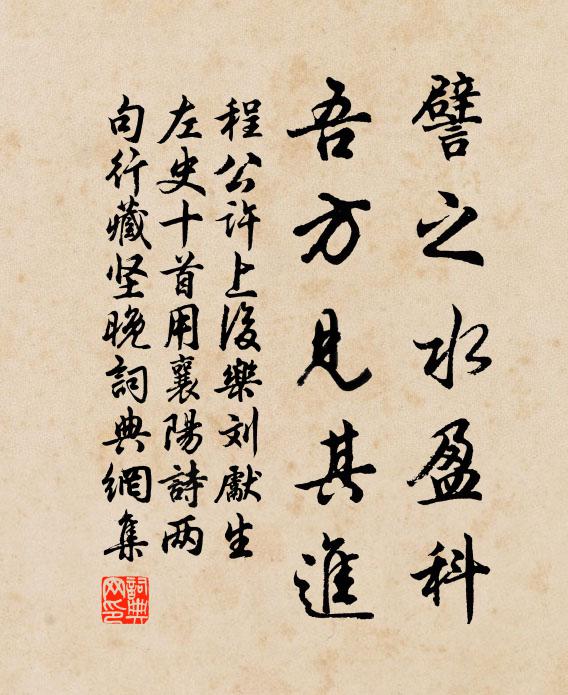 譬之水盈科
吾方見其進
程公許上後樂刘獻生
左史十首用襄陽詩两
句行藏坚晚詞典網集
詞典
网印